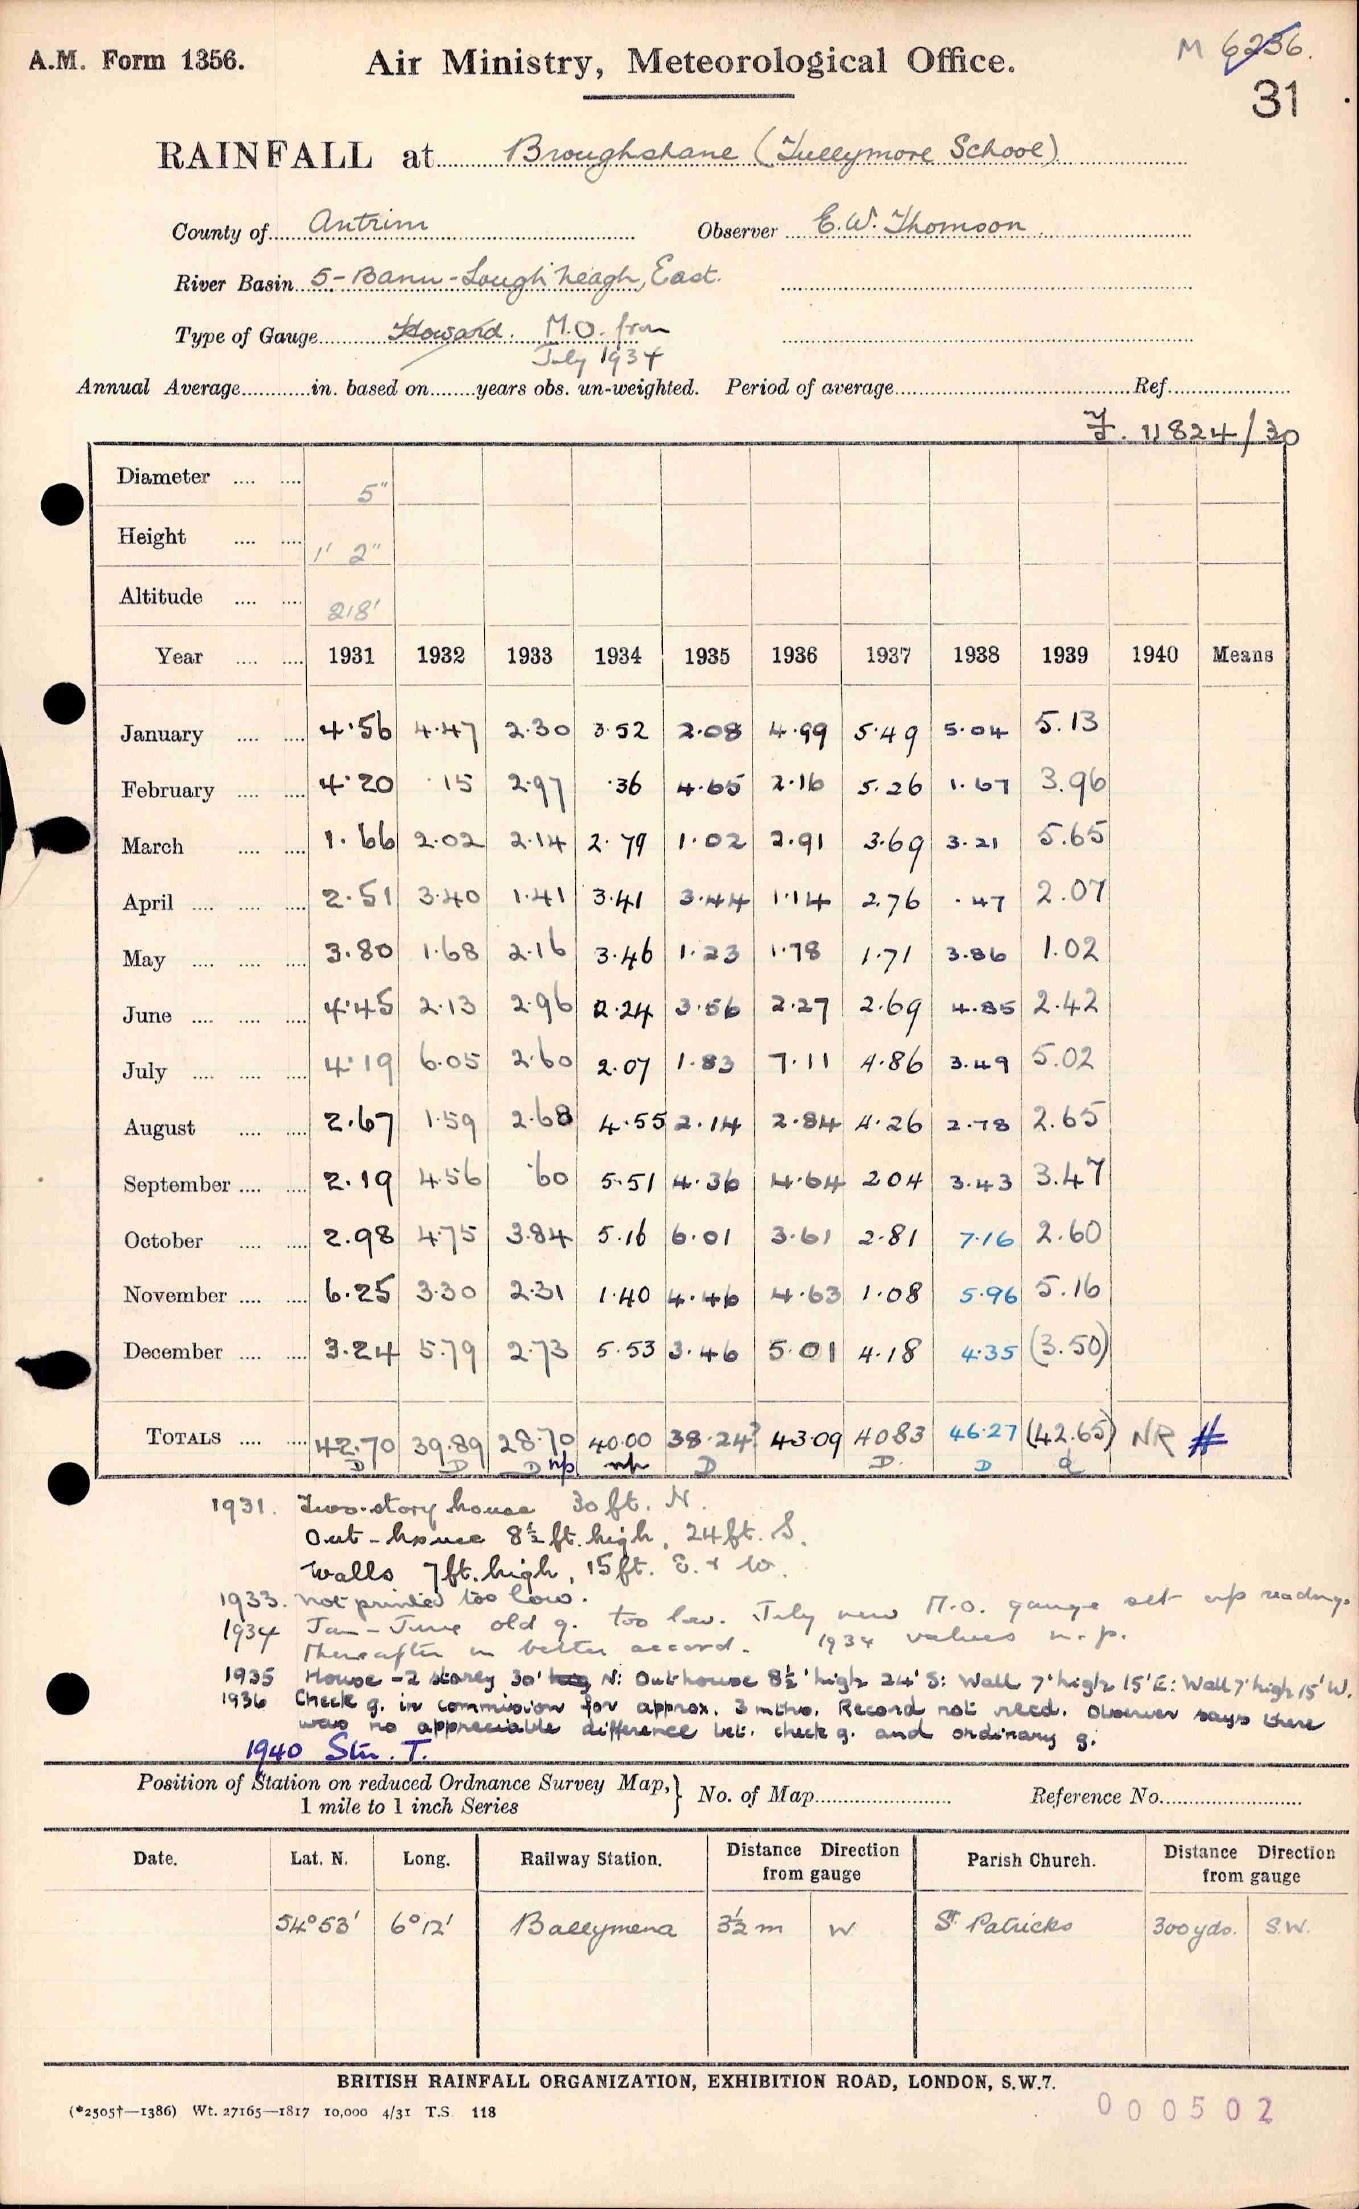 A.M. Form 1356.
Air Ministry, Meteorological Office.
M 6256.
31
RAINFALL at Broughshane (Tullymore School)
County of Antrim Observer E.W. Thomson
River Basin 5-Bann-Lough Neagh, East.
Type of Gauge Howard. M.O. from
July 1934
Annual Average in. based on years obs. un-weighted. Period of average Ref
11824/30
Diameter 5"
Height 1' 2"
Altitude 218'
Year 1931 1932 1933 1934 1935 1936 1937 1938 1939 1940 Means
January 4.56 4.47 2.30 3.52 2.08 4.99 5.49 5.04 5.13
February 4.20 .15 2.97 .36 4.65 2.16 5.26 1.67 3.96
March 1.66 2.02 2.14 2.79 1.02 2.91 3.69 3.21 5.65
April 2.51 3.40 1.41 3.41 3.44 1.14 2.76 .47 2.07
May 3.80 1.68 2.16 3.46 1.23 1.78 1.71 3.86 1.02
June 4.45 2.13 2.96 2.24 3.56 2.27 2.69 4.85 2.42
July 4.19 6.05 2.60 2.07 1.83 7.11 4.86 3.49 5.02
August 2.67 1.59 2.68 4.55 2.14 2.84 4.26 2.78 2.65
September 2.19 4.56 .60 5.51 4.36 4.64 2.04 3.43 3.47
October 2.98 4.75 3.84 5.16 6.01 3.61 2.81 7.16 2.60
November 6.25 3.30 2.31 1.40 4.46 4.63 1.08 5.96 5.16
December 3.24 5.79 2.73 5.53 3.46 5.01 4.18 4.35 (3.50)
TOTALS 42.70 39.89 28.70 40.00 38.24? 43.09 40.83 46.27 (42.65) NR #
D D D np np D D. D a
1931. Two-story house 30ft. N.
Out-house 8½ ft. high, 24ft. S.
Walls 7ft. high, 15ft. E. & W.
1933. not printed too low.
1934 Jan-June old g. too low. July new M.O. gauge set up readings
thereafter in better accord. 1934 values n.p.
1935 House - 2 storey 30' N: Outhouse 8½' high 24' S: Wall 7' high 15' E: Wall 7' high 15' W.
1936 Check g. in commission for approx. 3 mths. Record not recd. Observer says there
was no appreciable difference bet. check g. and ordinary g.
1940 Stn. T.
Position of Station on reduced Ordnance Survey Map, 1 mile to 1 inch Series } No. of Map Reference No.
Date. Lat. N. Long. Railway Station. Distance from gauge Direction Parish Church. Distance from gauge Direction
54°53' 6°12' Ballymena 3½ m W St. Patricks 300yds. S.W.
BRITISH RAINFALL ORGANIZATION, EXHIBITION ROAD, LONDON, S.W.7.
(*2505†—1386) Wt. 27165—1817 10,000 4/31 T.S. 118
000502